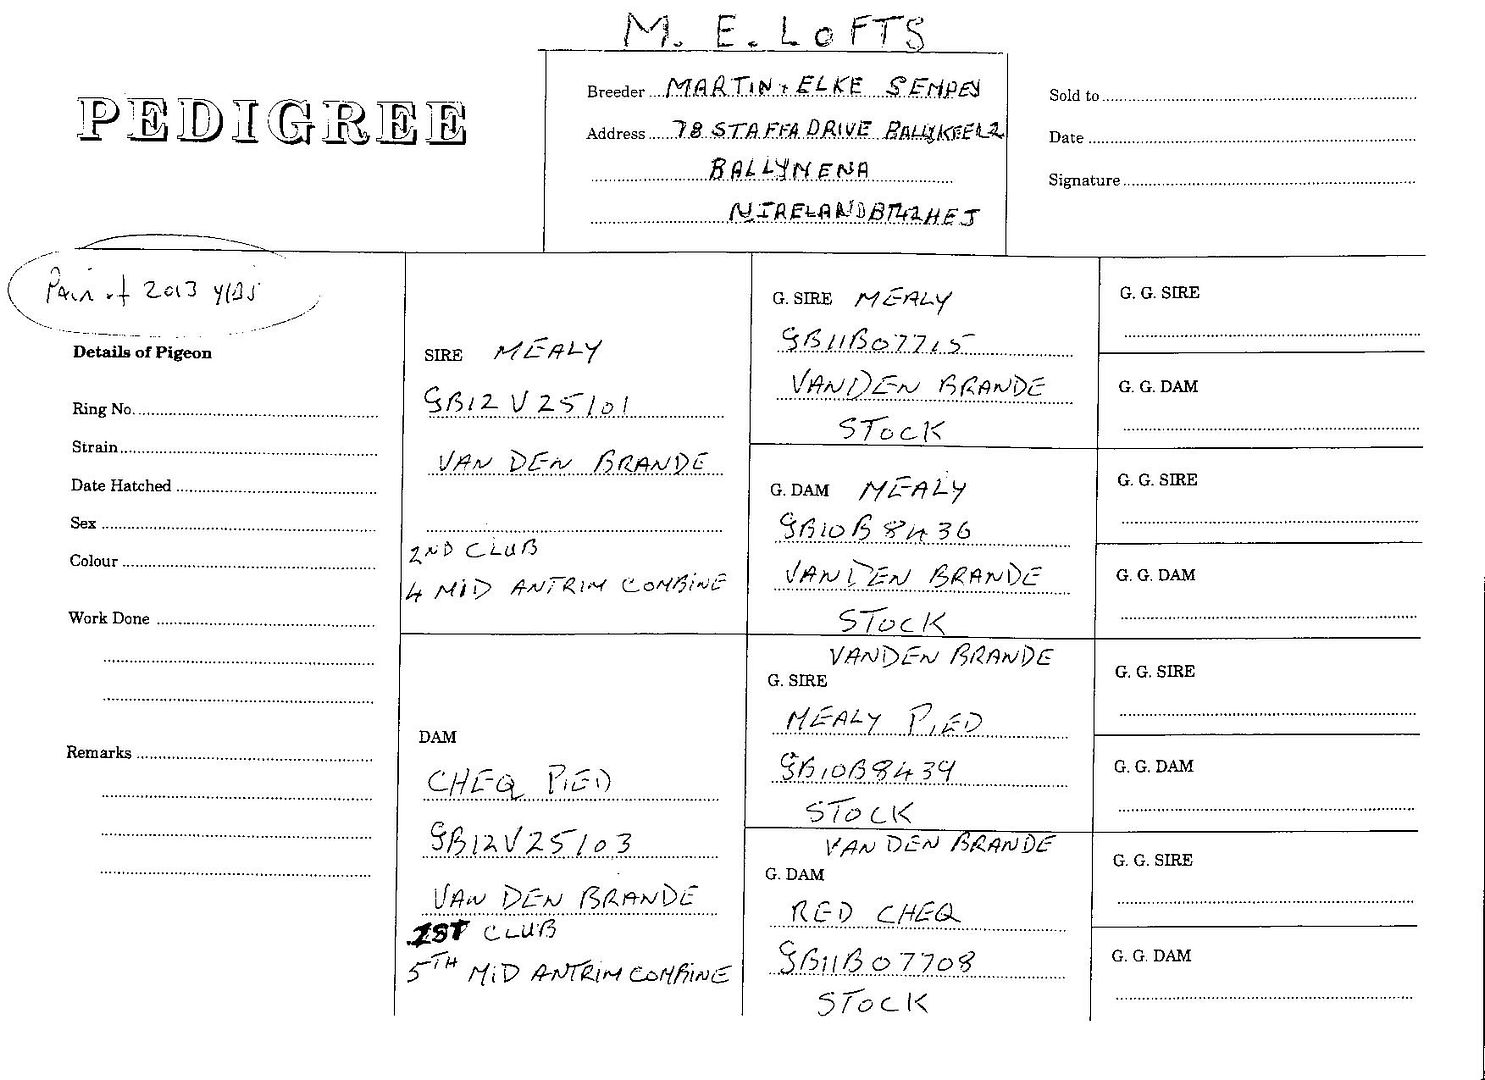 M. E. LOFTS
PEDIGREE
Breeder MARTIN + ELKE SEMPEY
Address 78 STAFFA DRIVE BALLYKEEL 2
BALLYMENA
N IRELAND BT42 HEJ
Sold to
Date
Signature
Pair of 2013 Y/BS
Details of Pigeon
Ring No.
Strain
Date Hatched
Sex
Colour
Work Done
Remarks
SIRE MEALY
GB12 V25101
VAN DEN BRANDE
2ND CLUB
4 MID ANTRIM COMBINE
DAM
CHEQ PIED
GB12V25103
VAN DEN BRANDE
1ST CLUB
5TH MID ANTRIM COMBINE
G. SIRE MEALY
GB11B07715
VANDEN BRANDE
STOCK
G. DAM MEALY
GB10B8436
VANDEN BRANDE
STOCK
VANDEN BRANDE
G. SIRE
MEALY PIED
GB10B8439
STOCK
VAN DEN BRANDE
G. DAM
RED CHEQ
GB11B07708
STOCK
G. G. SIRE
G. G. DAM
G. G. SIRE
G. G. DAM
G. G. SIRE
G. G. DAM
G. G. SIRE
G. G. DAM